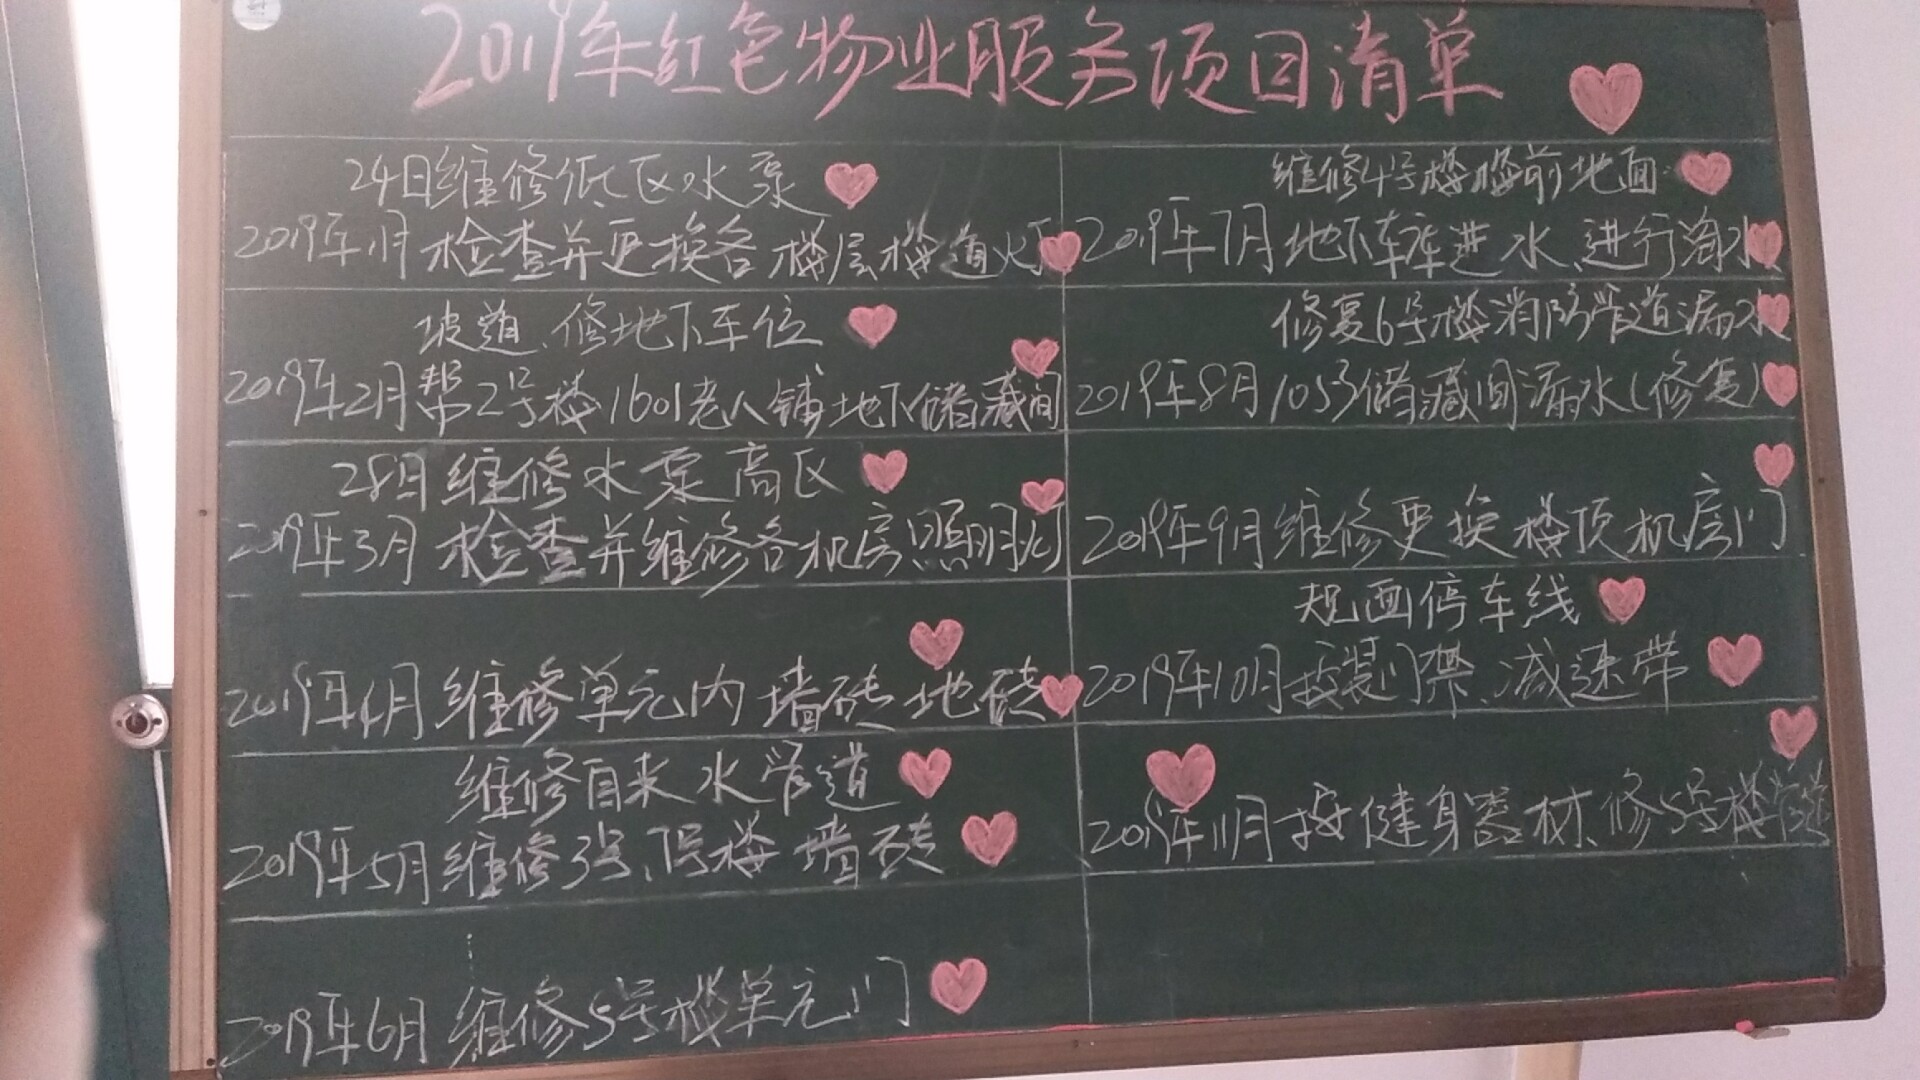 2019年红色物业服务项目清单
24日维修低区水泵
2019年1月检查并更换各楼层楼道灯
坡道、修地下车位
2019年2月帮2号楼1601老人铺地下储藏间
28日维修水泵高区
2019年3月检查并维修各机房照明灯
2019年4月维修单元内墙砖地砖
维修自来水管道
2019年5月维修3号、1号楼墙砖
2019年6月维修5号楼单元门
维修4号楼楼前地面
2019年7月地下车库进水、进行淘水
修复6号楼消防管道漏水
2019年8月1053储藏间漏水(修复)
2019年9月维修更换楼顶机房门
规画停车线
2019年10月按装门禁、减速带
2019年11月按健身器材、修5号楼管道